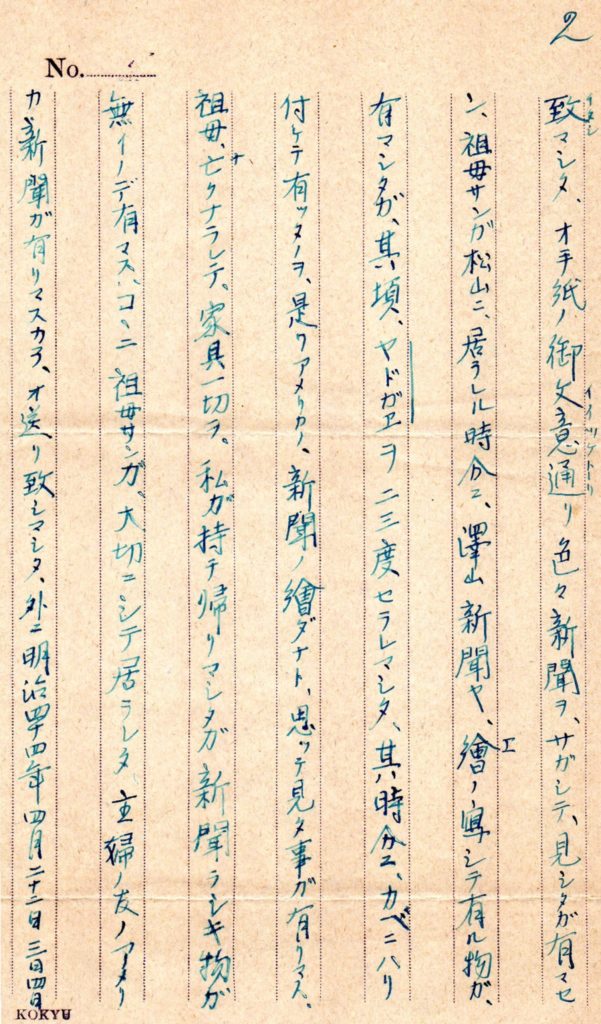 2
No.
致マシタ、オ手紙ノ御文意通リ色々新聞ヲ、サガシテ、見シタガ有マセ
イタシ
イイツケトーリ
ン、祖母サンガ松山ニ、居ラレル時分ニ、澤山新聞ヤ、繪ノ寫シテ有ル物ガ、
エ
有マシタガ、其頃、ヤドガヱヲ二三度セラレマシタ、其時分ニ、カベニハリ
付ケテ有ッタノヲ、是ワアメリカノ、新聞ノ繪ダナト、思ッテ見タ事ガ有リマス、
祖母、亡クナラレテ、家具一切ヲ、私ガ持チ帰リマシタガ新聞ラシキ物ガ
サ
無イノデ有マス、コヽニ祖母サンガ、大切ニシテ居ラレタ、主婦ノ友ノアメリ
カ新聞ガ有リマスカラ、オ送リ致シマシタ、外ニ明治四十四年四月二十二日三日四日
KOKYU